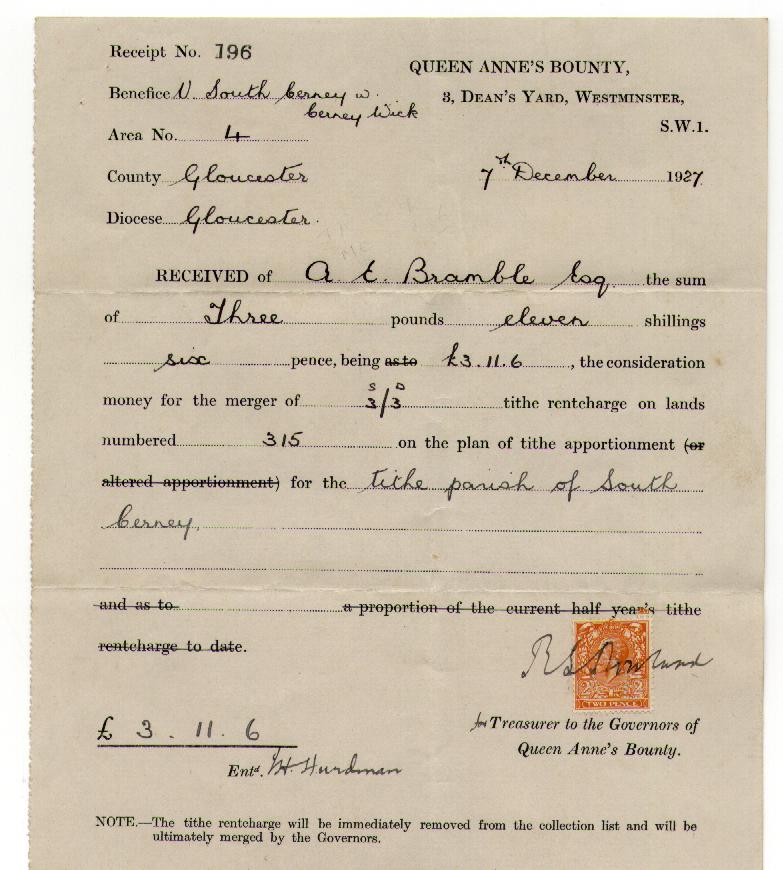 Receipt No. 196
QUEEN ANNE'S BOUNTY,
Benefice V. South Cerney w.
Cerney Wick
3, DEAN'S YARD, WESTMINSTER,
S.W.1.
Area No. 4
County Gloucester
7th December 1927
Diocese Gloucester.
RECEIVED of A. E. Bramble Esq the sum
of Three pounds eleven shillings
six pence, being as to £3.11.6, the consideration
S D
money for the merger of 3/3 tithe rentcharge on lands
numbered 315 on the plan of tithe apportionment (or
altered apportionment) for the tithe parish of South
Cerney,
and as to a proportion of the current half year's tithe
rentcharge to date.
TWO PENCE
£ 3. 11. 6
for Treasurer to the Governors of
Queen Anne's Bounty.
Entd. Hurdman
NOTE.—The tithe rentcharge will be immediately removed from the collection list and will be
ultimately merged by the Governors.